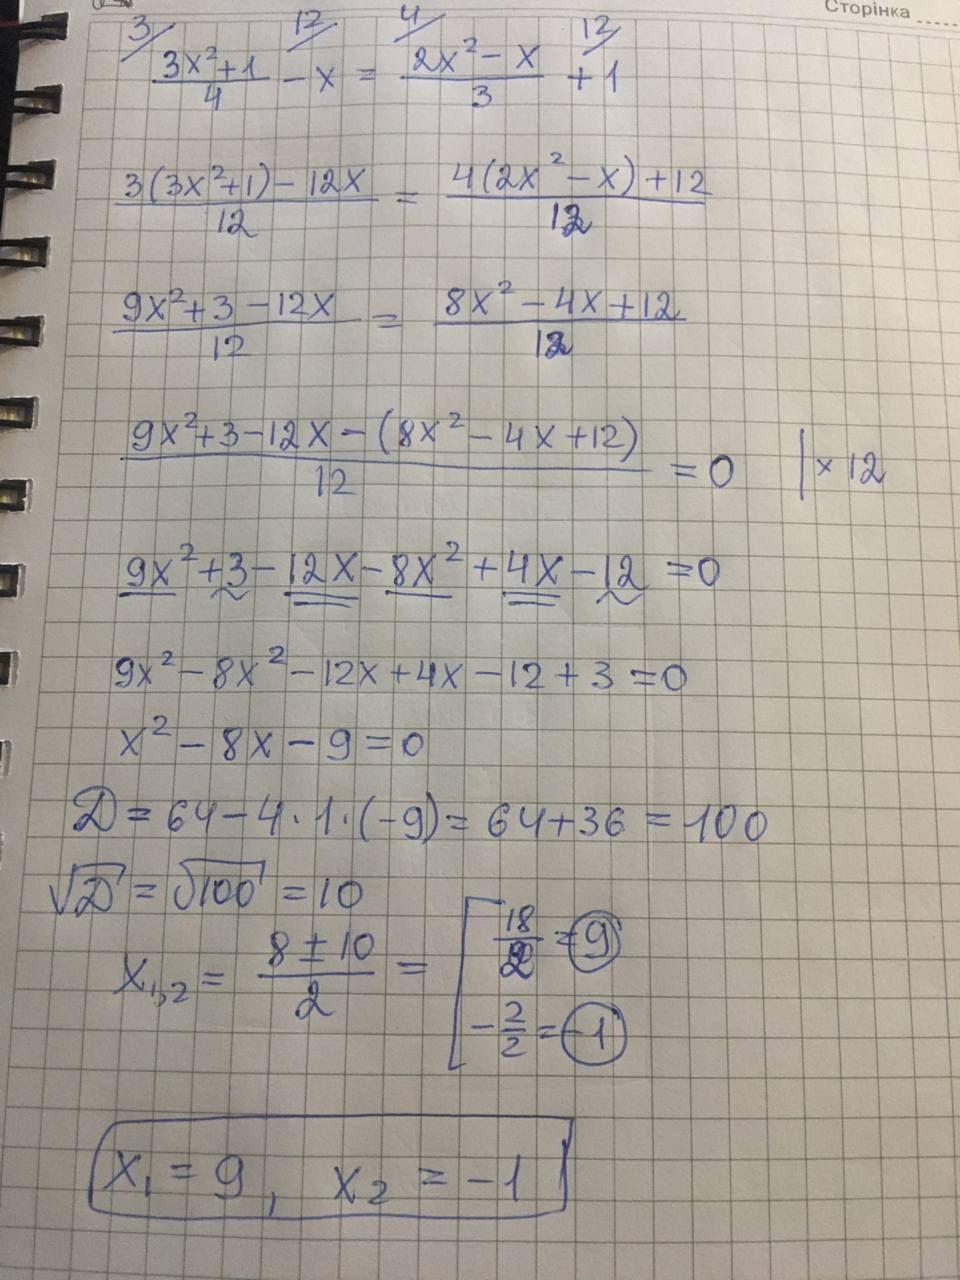 Сторінка
3/ 12/ 4/ 12/
(3x²+1)/4 - x = (2x² - x)/3 + 1
(3(3x²+1) - 12x)/12 = (4(2x² - x) + 12)/12
(9x²+3 - 12x)/12 = (8x² - 4x + 12)/12
(9x²+3-12x-(8x²-4x+12))/12 = 0 | × 12
9x²+3-12x-8x²+4x-12=0
9x²-8x²-12x+4x-12+3=0
x²-8x-9=0
D=64-4·1·(-9)=64+36=100
√D=√100=10
x₁,₂ = (8±10)/2 = [ 18/2 = 9
-2/2 = -1
x₁ = 9, x₂ = -1